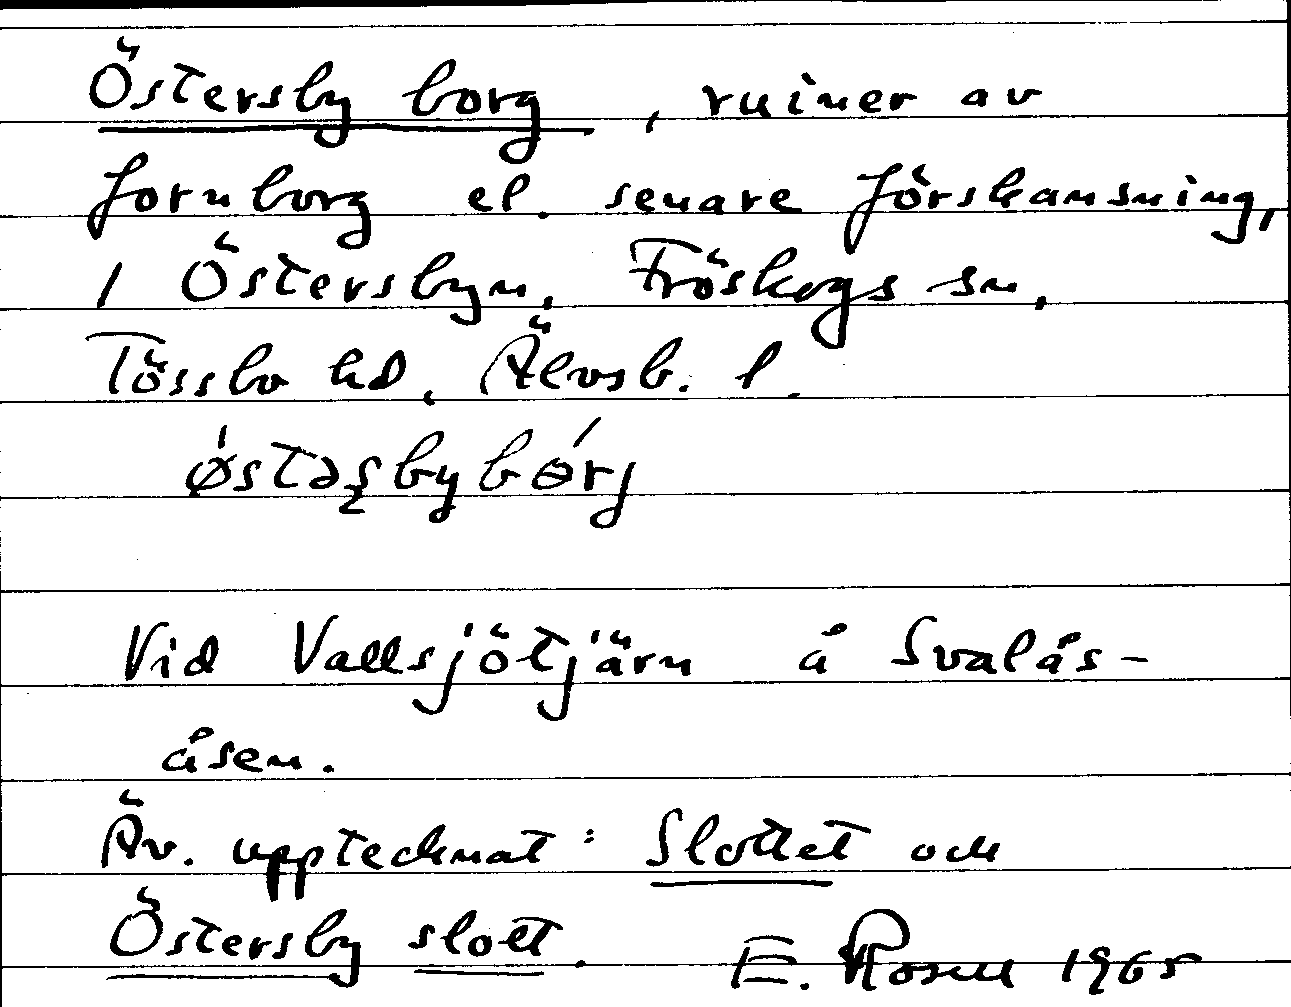 Östersby borg, ruiner av
fornborg el. senare förskansning,
i Östersbyn, Fröskogs sn,
Tössbo hd, Älvsb. l.
østəʂbybɵ́rj
Vid Vallsjötjärn å Svalås-
åsen.
Äv. upptecknat: Slottet och
Östersby slott. E. Rosell 1965